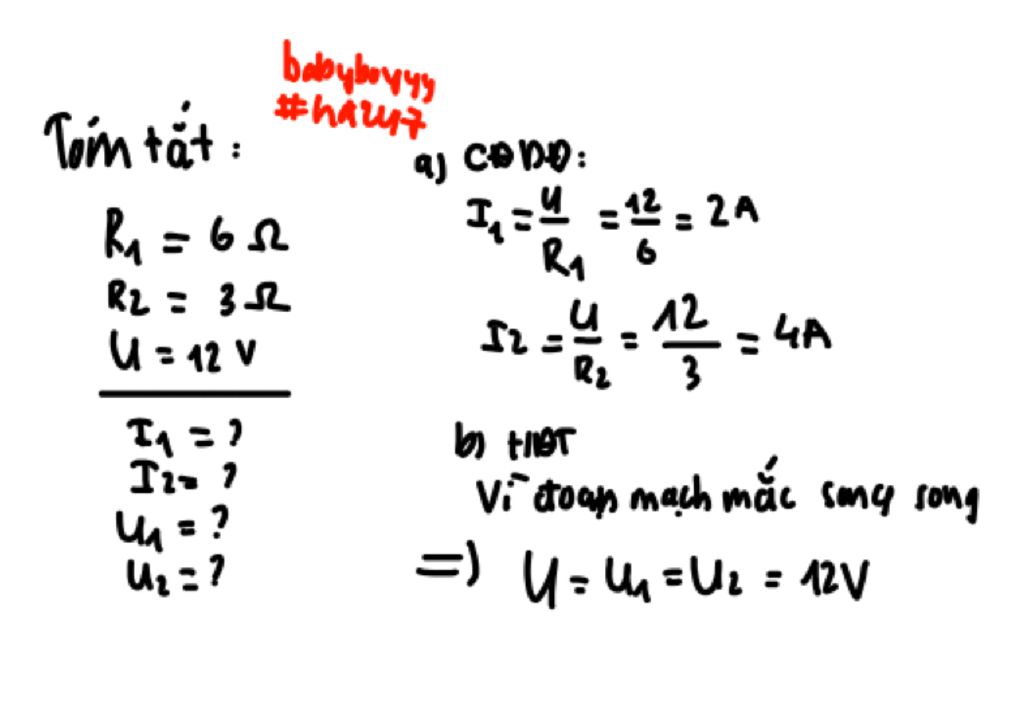 babyboyyy
#ha247
Tóm tắt :
R1 = 6 Ω
R2 = 3 Ω
U = 12 V
I1 = ?
I2 = ?
U1 = ?
U2 = ?
a) CĐDĐ:
I1 = U/R1 = 12/6 = 2A
I2 = U/R2 = 12/3 = 4A
b) HĐT
Vì đoạn mạch mắc song song
=) U = U1 = U2 = 12V